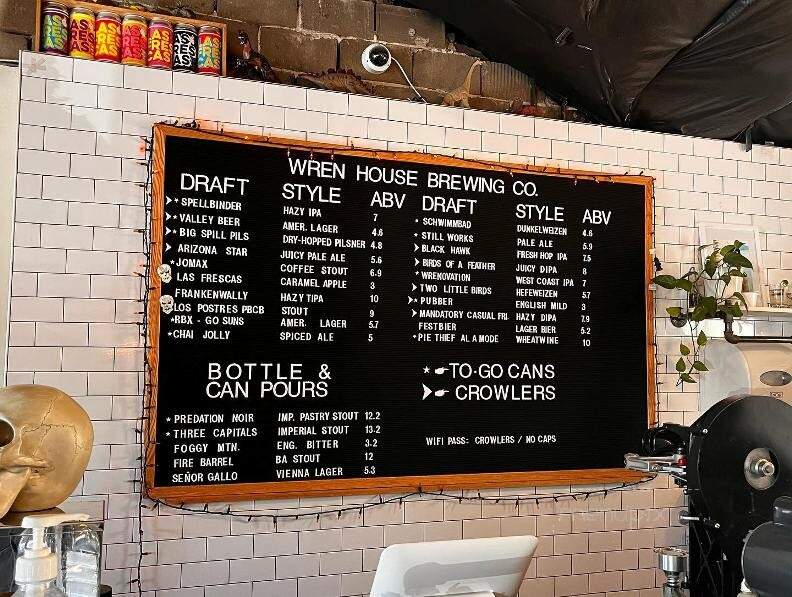 WREN HOUSE BREWING CO.
DRAFT STYLE ABV
* SPELLBINDER HAZY IPA 7
* VALLEY BEER AMER. LAGER 4.6
* BIG SPILL PILS DRY-HOPPED PILSNER 4.8
ARIZONA STAR JUICY PALE ALE 5.6
* JOMAX COFFEE STOUT 6.9
LAS FRESCAS CARAMEL APPLE 3
FRANKENWALLY HAZY TIPA 10
LOS POSTRES PBCB STOUT 9
* RBX - GO SUNS AMER. LAGER 5.7
* CHAI JOLLY SPICED ALE 5
DRAFT STYLE ABV
* SCHWIMMBAD DUNKELWEIZEN 4.6
* STILL WORKS PALE ALE 5.9
BLACK HAWK FRESH HOP IPA 7.5
BIRDS OF A FEATHER JUICY DIPA 8
* WRENOVATION WEST COAST IPA 7
TWO LITTLE BIRDS HEFEWEIZEN 5.7
* PUBBER ENGLISH MILD 3
MANDATORY CASUAL FRI. HAZY DIPA 7.9
FESTBIER LAGER BIER 5.2
* PIE THIEF AL A MODE WHEATWINE 10
BOTTLE &
CAN POURS
* PREDATION NOIR IMP. PASTRY STOUT 12.2
* THREE CAPITALS IMPERIAL STOUT 13.2
FOGGY MTN. ENG. BITTER 3.2
FIRE BARREL BA STOUT 12
SEÑOR GALLO VIENNA LAGER 5.3
* TO-GO CANS
CROWLERS
WIFI PASS: CROWLERS / NO CAPS